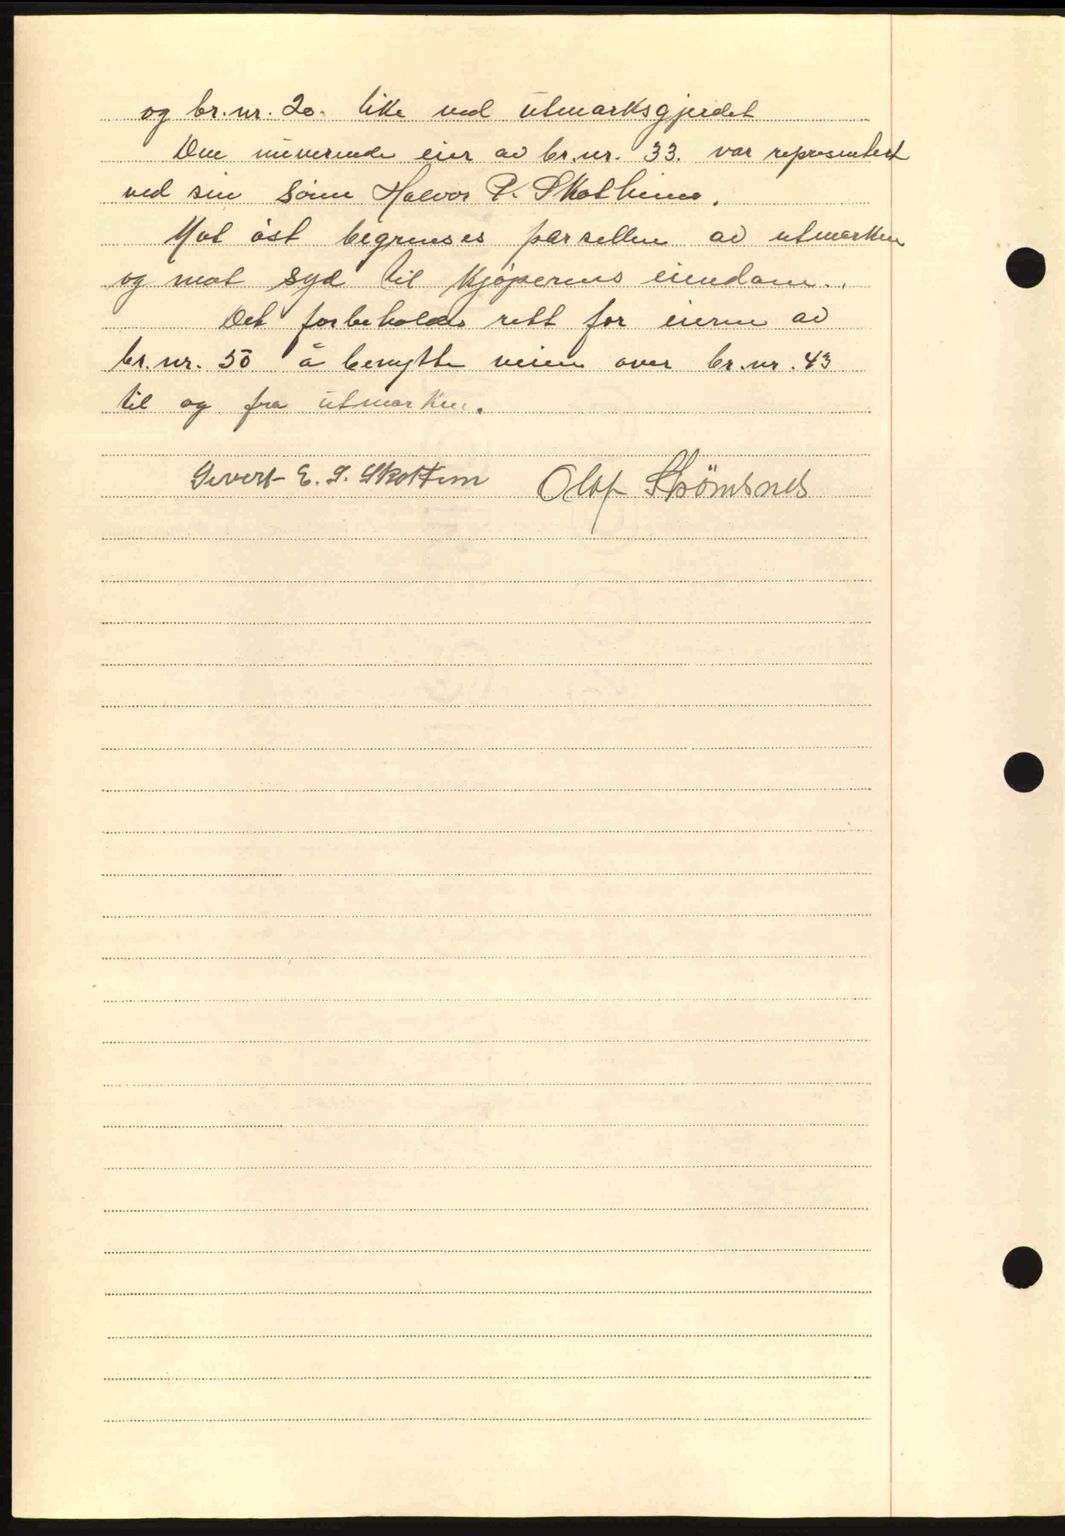 og br.nr. 20. like ved utmarksgjerdet
Den nuverende eier av br.nr. 33. var representert
ved sin sönn Halvor P. Skotheim.
Mot öst begrenses parsellen av utmarken
og mot syd til kjöperens eiendom.
Det forbeholdes rett for eieren av
br.nr. 50 å benytte veien over br.nr. 43
til og fra utmarken.
Severt E. S. Skotteim Olaf Strömsnes